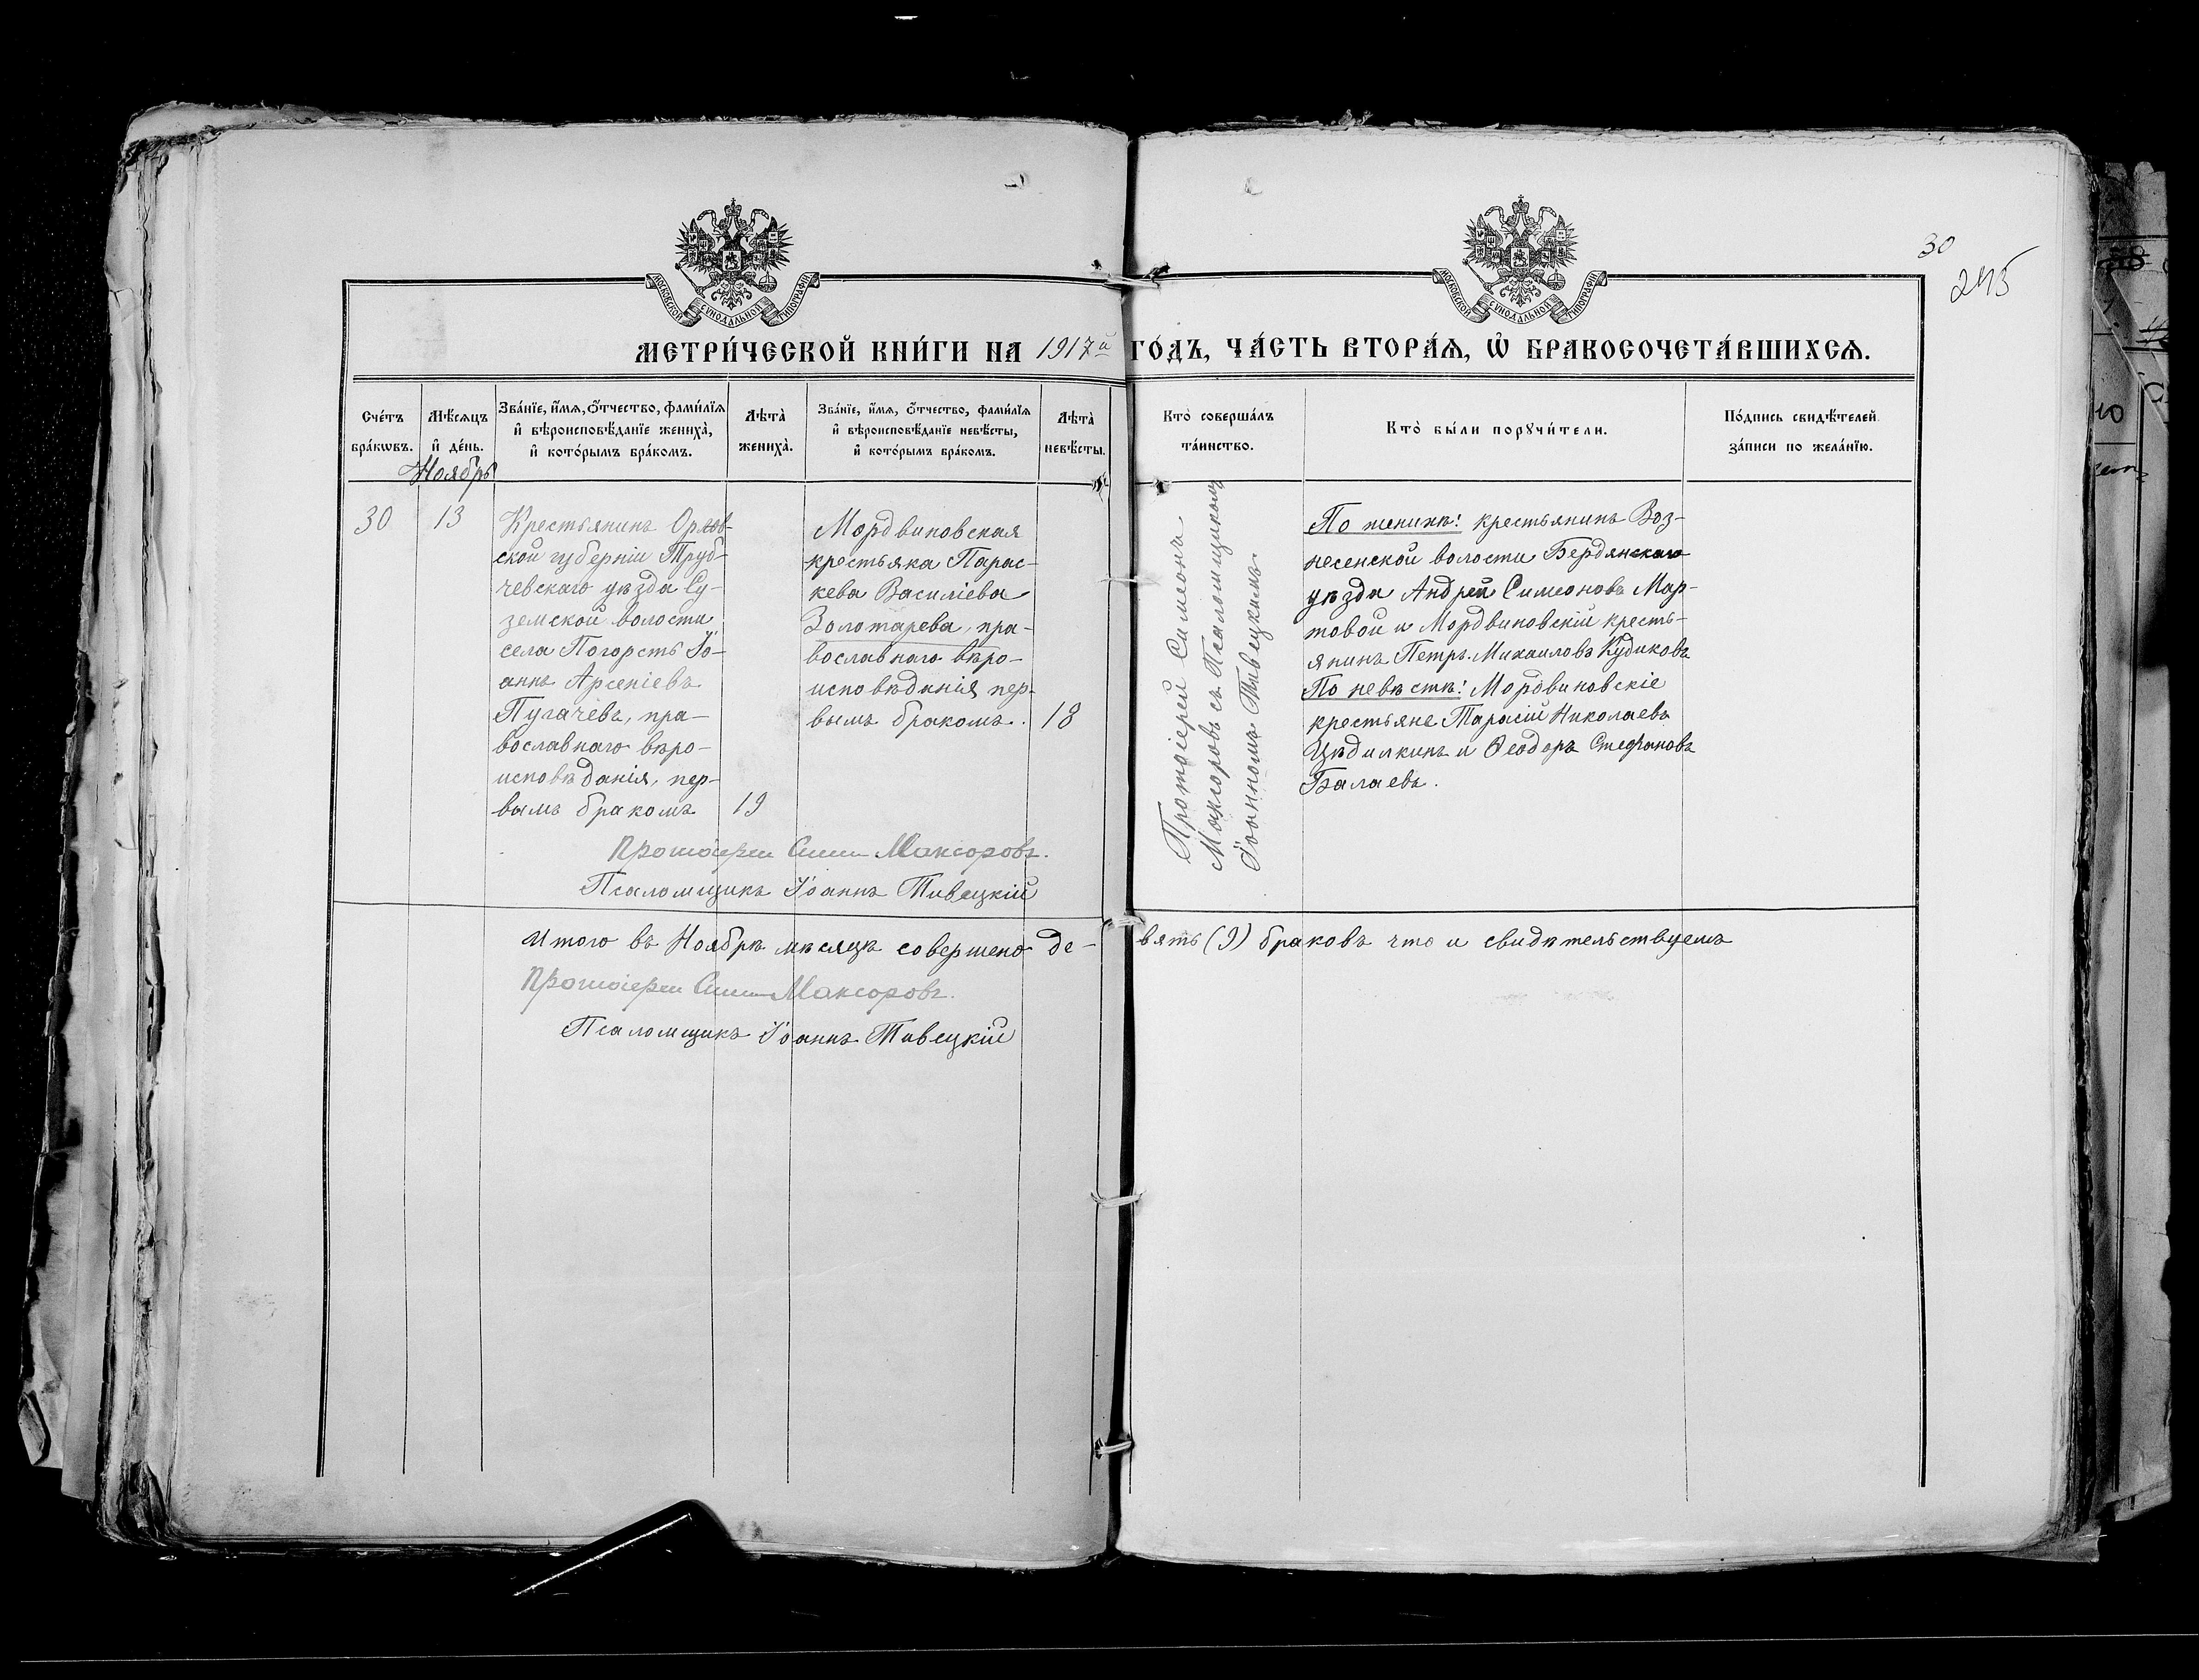 30
245
МОСКОВСКОЙ СУНОДАЛЬНОЙ ТИПОГРАФІИ
МОСКОВСКОЙ СУНОДАЛЬНОЙ ТИПОГРАФІИ
МЕТРИ́ЧЕСКОЙ КНИ́ГИ НА 1917й ГО́ДЪ, ЧА́СТЬ ВТОРА́Я, Ѽ БРАКОСОЧЕТА́ВШИХСЯ.
Сче́тъ
бра́кѡвъ.
Мѣ́сяцъ
и҆ де́нь.
Зва́нїе, и҆́мя, ѻ҆́тчество, фами́лїя
и҆ вѣроисповѣ́данїе жениха̀,
и҆ кото́рымъ бра́комъ.
Лѣта̀
жениха̀.
Зва́нїе, и҆́мя, ѻ҆́тчество, фами́лїя
и҆ вѣроисповѣ́данїе невѣ́сты,
и҆ кото́рымъ бра́комъ.
Лѣта̀
невѣ́сты.
Кто̀ соверша́лъ
та́инство.
Кто̀ бы́ли порꙋчи́тели.
По́дпись свидѣ́телей
за́писи по жела́нїю.
Ноябрь
30
13
Крестьянинъ Орлов-
ской губерніи Труб-
чевскаго уѣзда Су-
земской волости
села Погорсть Іо-
аннъ Арсеніевъ
Пугачёвъ, пра-
вославнаго вѣро-
исповѣданія, пер-
вымъ бракомъ
19
Мордвиновская
крестьяка Парас-
кева Василіева
Золотарева, пра-
вославнаго вѣро-
исповѣданія пер-
вымъ бракомъ.
18
Протоіерей Симеонъ
Максоровъ съ Псаломщикомъ
Іоанномъ Тивецкимъ
По женихѣ: крестьянинъ Воз-
несенской волости Бердянскаго
уѣзда Андрей Симеоновъ Мар-
товой и Мордвиновскій кресть-
янинъ Петръ Михаиловъ Кудиковъ
По невѣстѣ: Мордвиновскіе
крестьяне Тарасій Николаевъ
Цѣдилкинъ и Ѳеодоръ Стефановъ
Балаевъ.
Протоіерей Симеонъ Максоровъ.
Псаломщикъ Іоаннъ Тивецкій
Итого въ Ноябрѣ мѣсяцѣ совершено де-вять (9) браковъ что и свидѣтельствуемъ
Протоіерей Симеонъ Максоровъ.
Псаломщикъ Іоаннъ Тивецкій